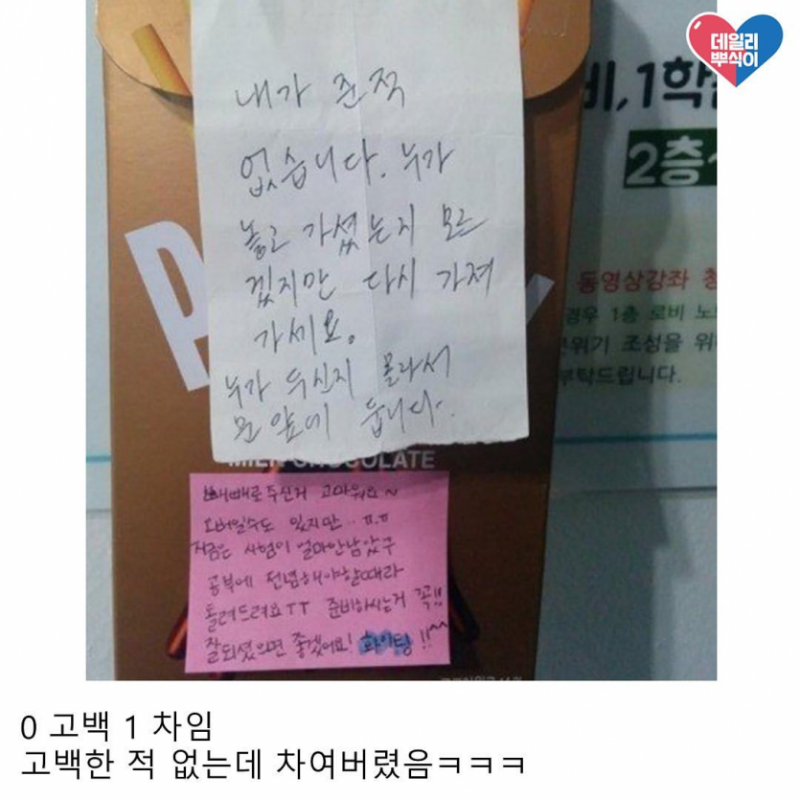 데일리
뿌식이
내가 준적
없습니다. 누가
놓고 가셨는지 모르
겠지만 다시 가져
가세요.
누가 두신지 몰라서
문 앞에 둡니다.
비,1학
2층
동영상강좌
경우 1층 로비 노
분위기 조성을 위
부탁드립니다.
P
MILK CHOCOLATE
빼빼로 주신거 고마워요~
오버일수도 있지만.. ㅠ.ㅠ
지금은 시험이 얼마안남았구
공부에 전념해야할때라
돌려드려요TT 준비하시는거 꼭!!
잘되셨으면 좋겠어요! 화이팅!!~~
0 고백 1 차임
고백한 적 없는데 차여버렸음ㅋㅋㅋ